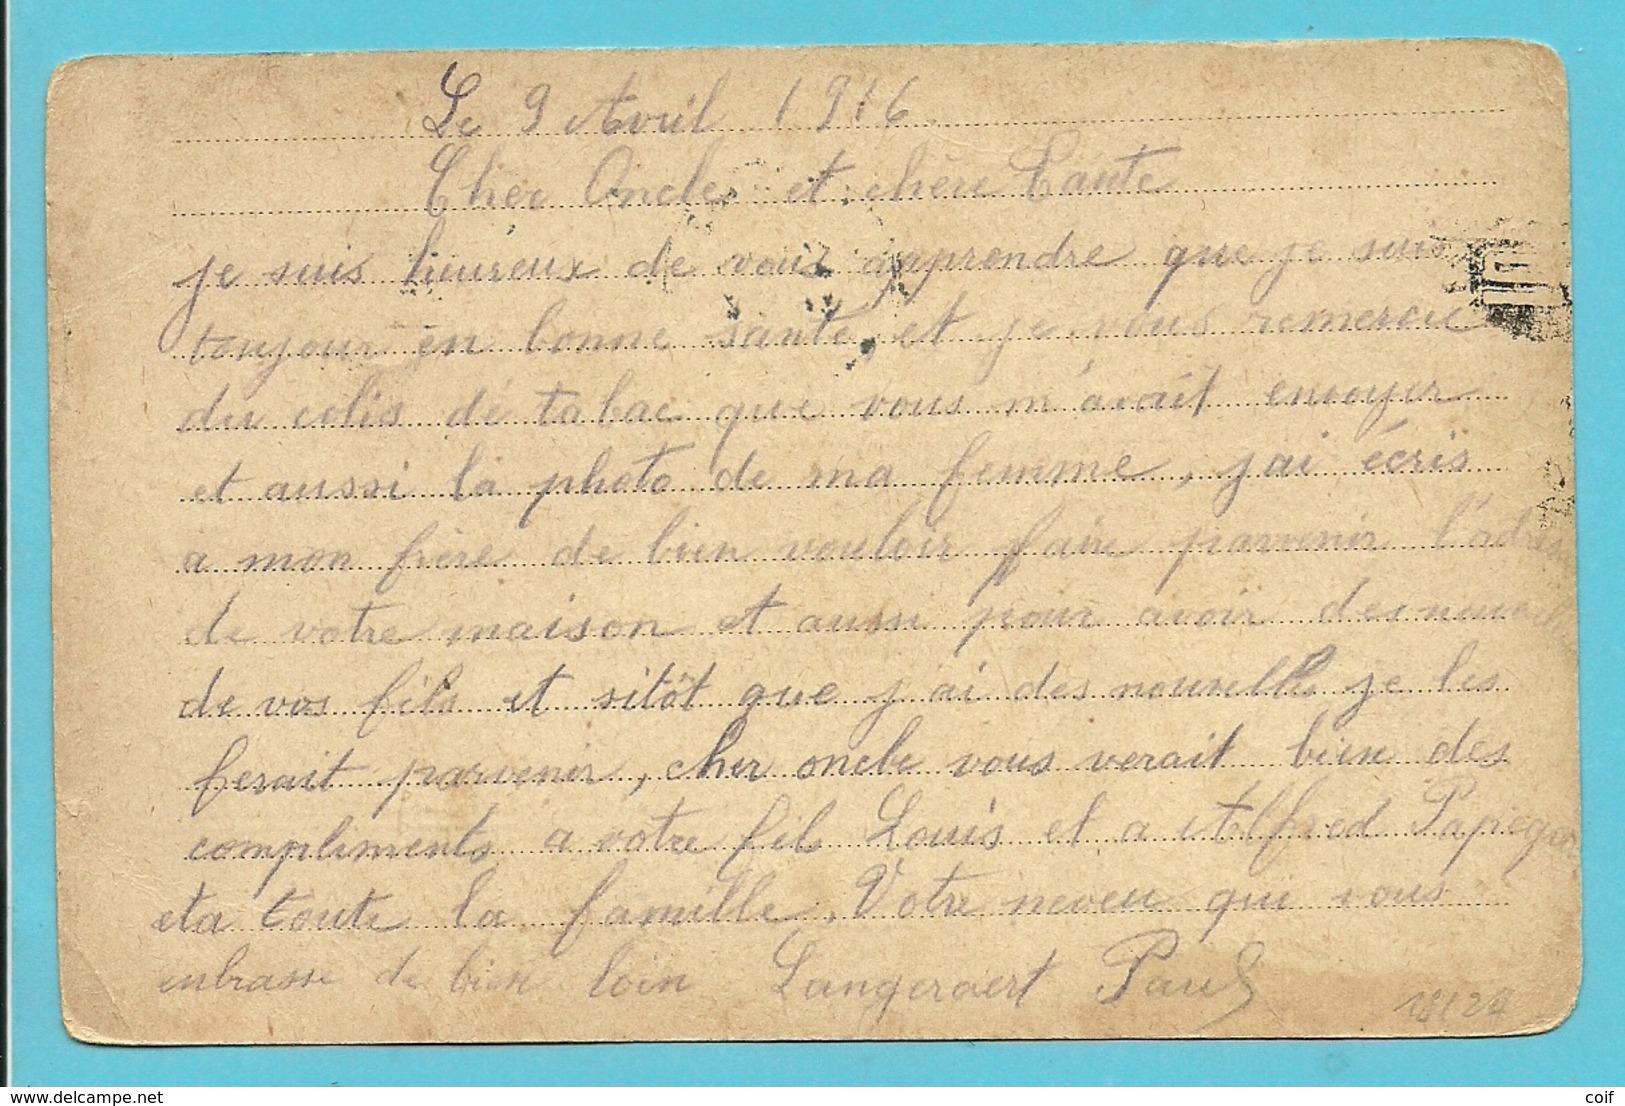 Le 9 Avril 1916.
Cher Oncle et chère Tante
je suis heureux de vous apprendre que je suis
toujour en bonne santé, et je vous remercie
du colis de tabac que vous m'avait envoyer
et aussi la photo de ma femme, j'ai écris
a mon frère de bien vouloir faire parvenir l'adresse
de votre maison et aussi pour avoir des nouvelle
de vos fils et sitôt que j'ai des nouvelle je les
ferait parvenir, cher oncle vous verait bien des
compliments a votre fils Louis et a Alfred
et a toute la famille. Votre neveu qui vous
enbrasse de bien loin Langeraert Paul
delcampe.net
coif